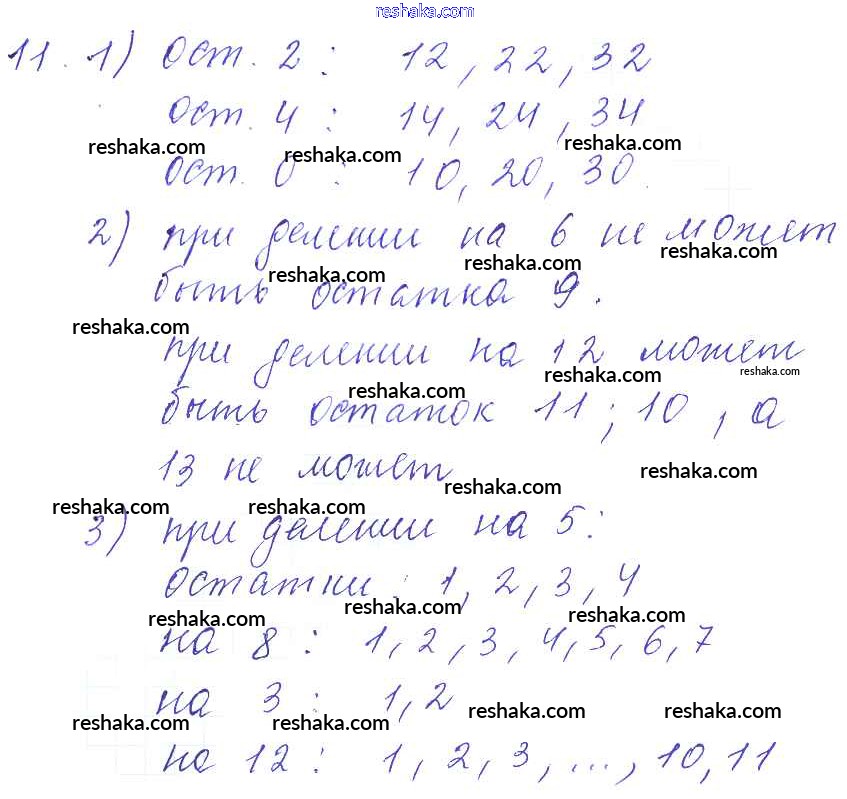 reshaka.com
11. 1) ост. 2 : 12, 22, 32
ост. 4 : 14, 24, 34
reshaka.com reshaka.com reshaka.com
ост. 0 : 10, 20, 30.
2) при делении на 6 не может
reshaka.com reshaka.com reshaka.com
быть остатка 9.
reshaka.com
при делении на 12 может
reshaka.com reshaka.com reshaka.com
быть остаток 11; 10, а
13 не может
reshaka.com reshaka.com reshaka.com reshaka.com
3) при делении на 5:
остатки : 1, 2, 3, 4
reshaka.com reshaka.com reshaka.com
на 8 : 1, 2, 3, 4, 5, 6, 7
на 3 : 1, 2
reshaka.com reshaka.com reshaka.com reshaka.com
на 12 : 1, 2, 3, ..., 10, 11